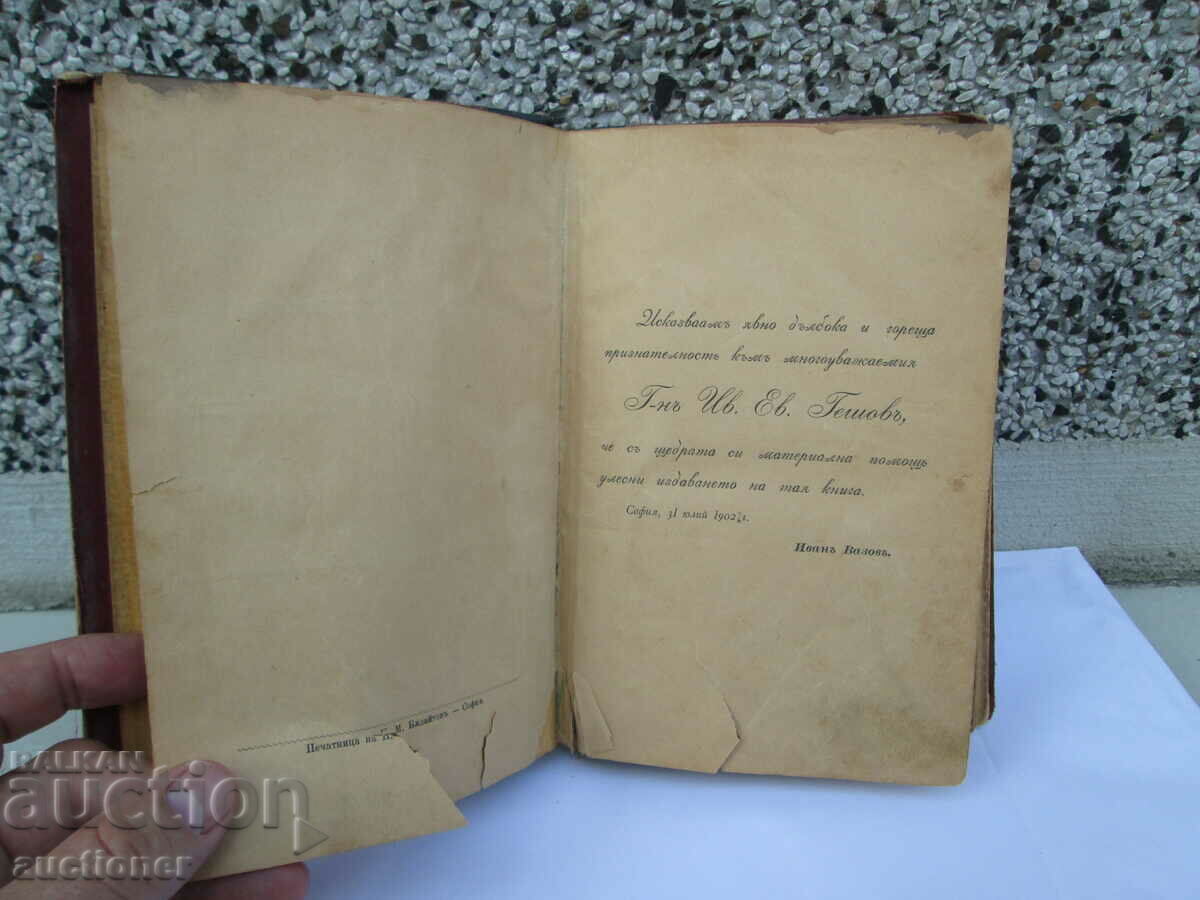 Печатница на М. Бизайтов — София
Исказваамъ явно дълбока и гореща
признателность къмъ многоуважаемия
Г-нъ Ив. Ев. Гешовъ,
че съ щедрата си материална помощь
улесни издаването на тая книга.
София, 31 юлий 1902 г.
Иванъ Вазовъ.
BALKAN
auction
auctioner